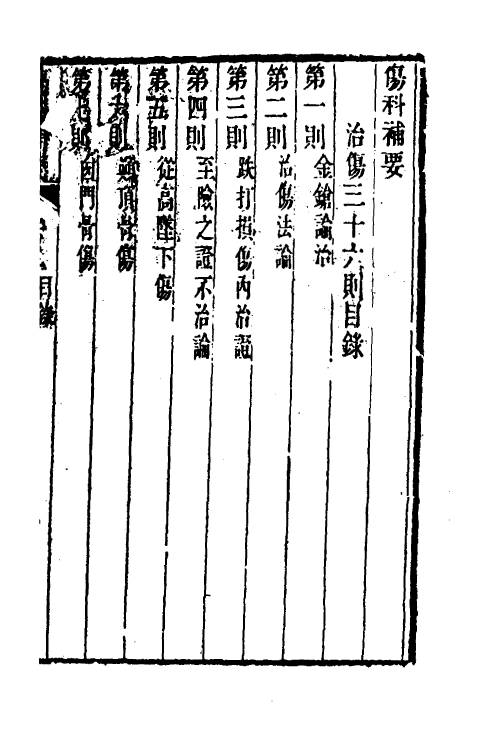 傷科補要
治傷三十六則目錄
第一則 金鎗論治
第二則 治傷法論
第三則 跌打損傷內治證
第四則 至險之證不治論
第五則 從高墜下傷
第六則 巔頂骨傷
第七則 囟門骨傷
目錄